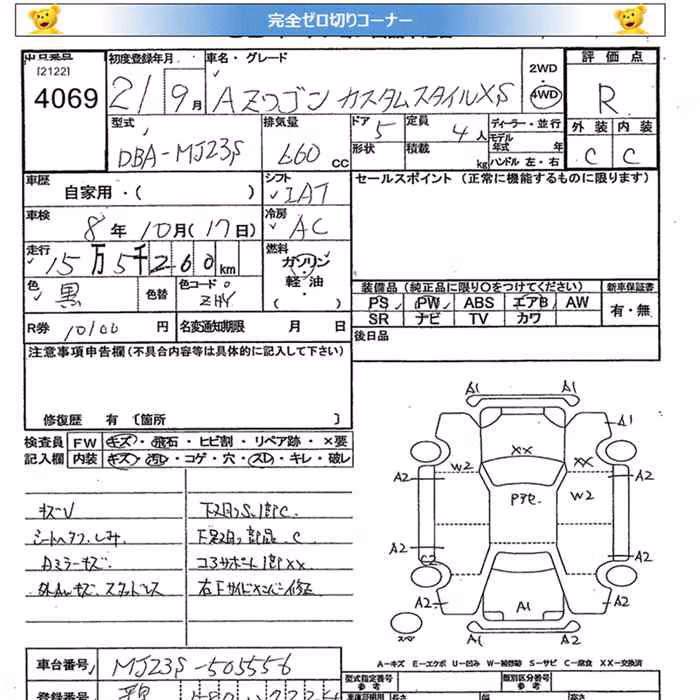 完全ゼロ切りコーナー
[2122]
4069
初度登録年月
21 9月
車名・グレード
AZワゴン カスタムスタイルXS
2WD
・
4WD
評価点
R
型式
DBA-MJ23S
排気量
660 CC
ドア 5
定員 4人
形状
積載 kg
ディーラー・並行
モデル年式 年
ハンドル 左・右
外装 内装
C C
車歴
自家用・( )
シフト
IAT
セールスポイント (正常に機能するものに限ります)
車検
8年 10月(17日)
冷房
AC
走行
15万5千260km
燃料
ガソリン
・
軽油
( )
色
黒
色替
色コード
ZHY
装備品 (純正品に限り○をつけてください)
新車保証書
PS PW ABS エアB AW
有・無
SR ナビ TV カワ
R券 10100 円
名変通知期限 月 日
後日品
注意事項申告欄(不具合内容等は具体的に記入して下さい)
修復歴 有 〔箇所 〕
検査員 FW キズ・飛石・ヒビ割・リペア跡・×要
記入欄 内装 キズ・汚レ・コゲ・穴・スレ・キレ・破レ
キズV
シートヘタフ.しみ
Rミラーキズ.
外AWキズ. スタットレス
下廻りS.1部C.
下足廻り部品.C
コアサポート1部XX
右Fサイドメンバー修正
A1 A1
A1
XX
W2 XX
A2 A2
Pアセ. W2
A2 A2
C2
A2 A1 A2
スペ
A1 A2
A-キズ E-エクボ U-凹み W-補修跡 S-サビ C-腐食 XX-交換済
車台番号 MJ23S-505556
型式指定番号
参考
類別区分番号
参考
登録番号
長さ